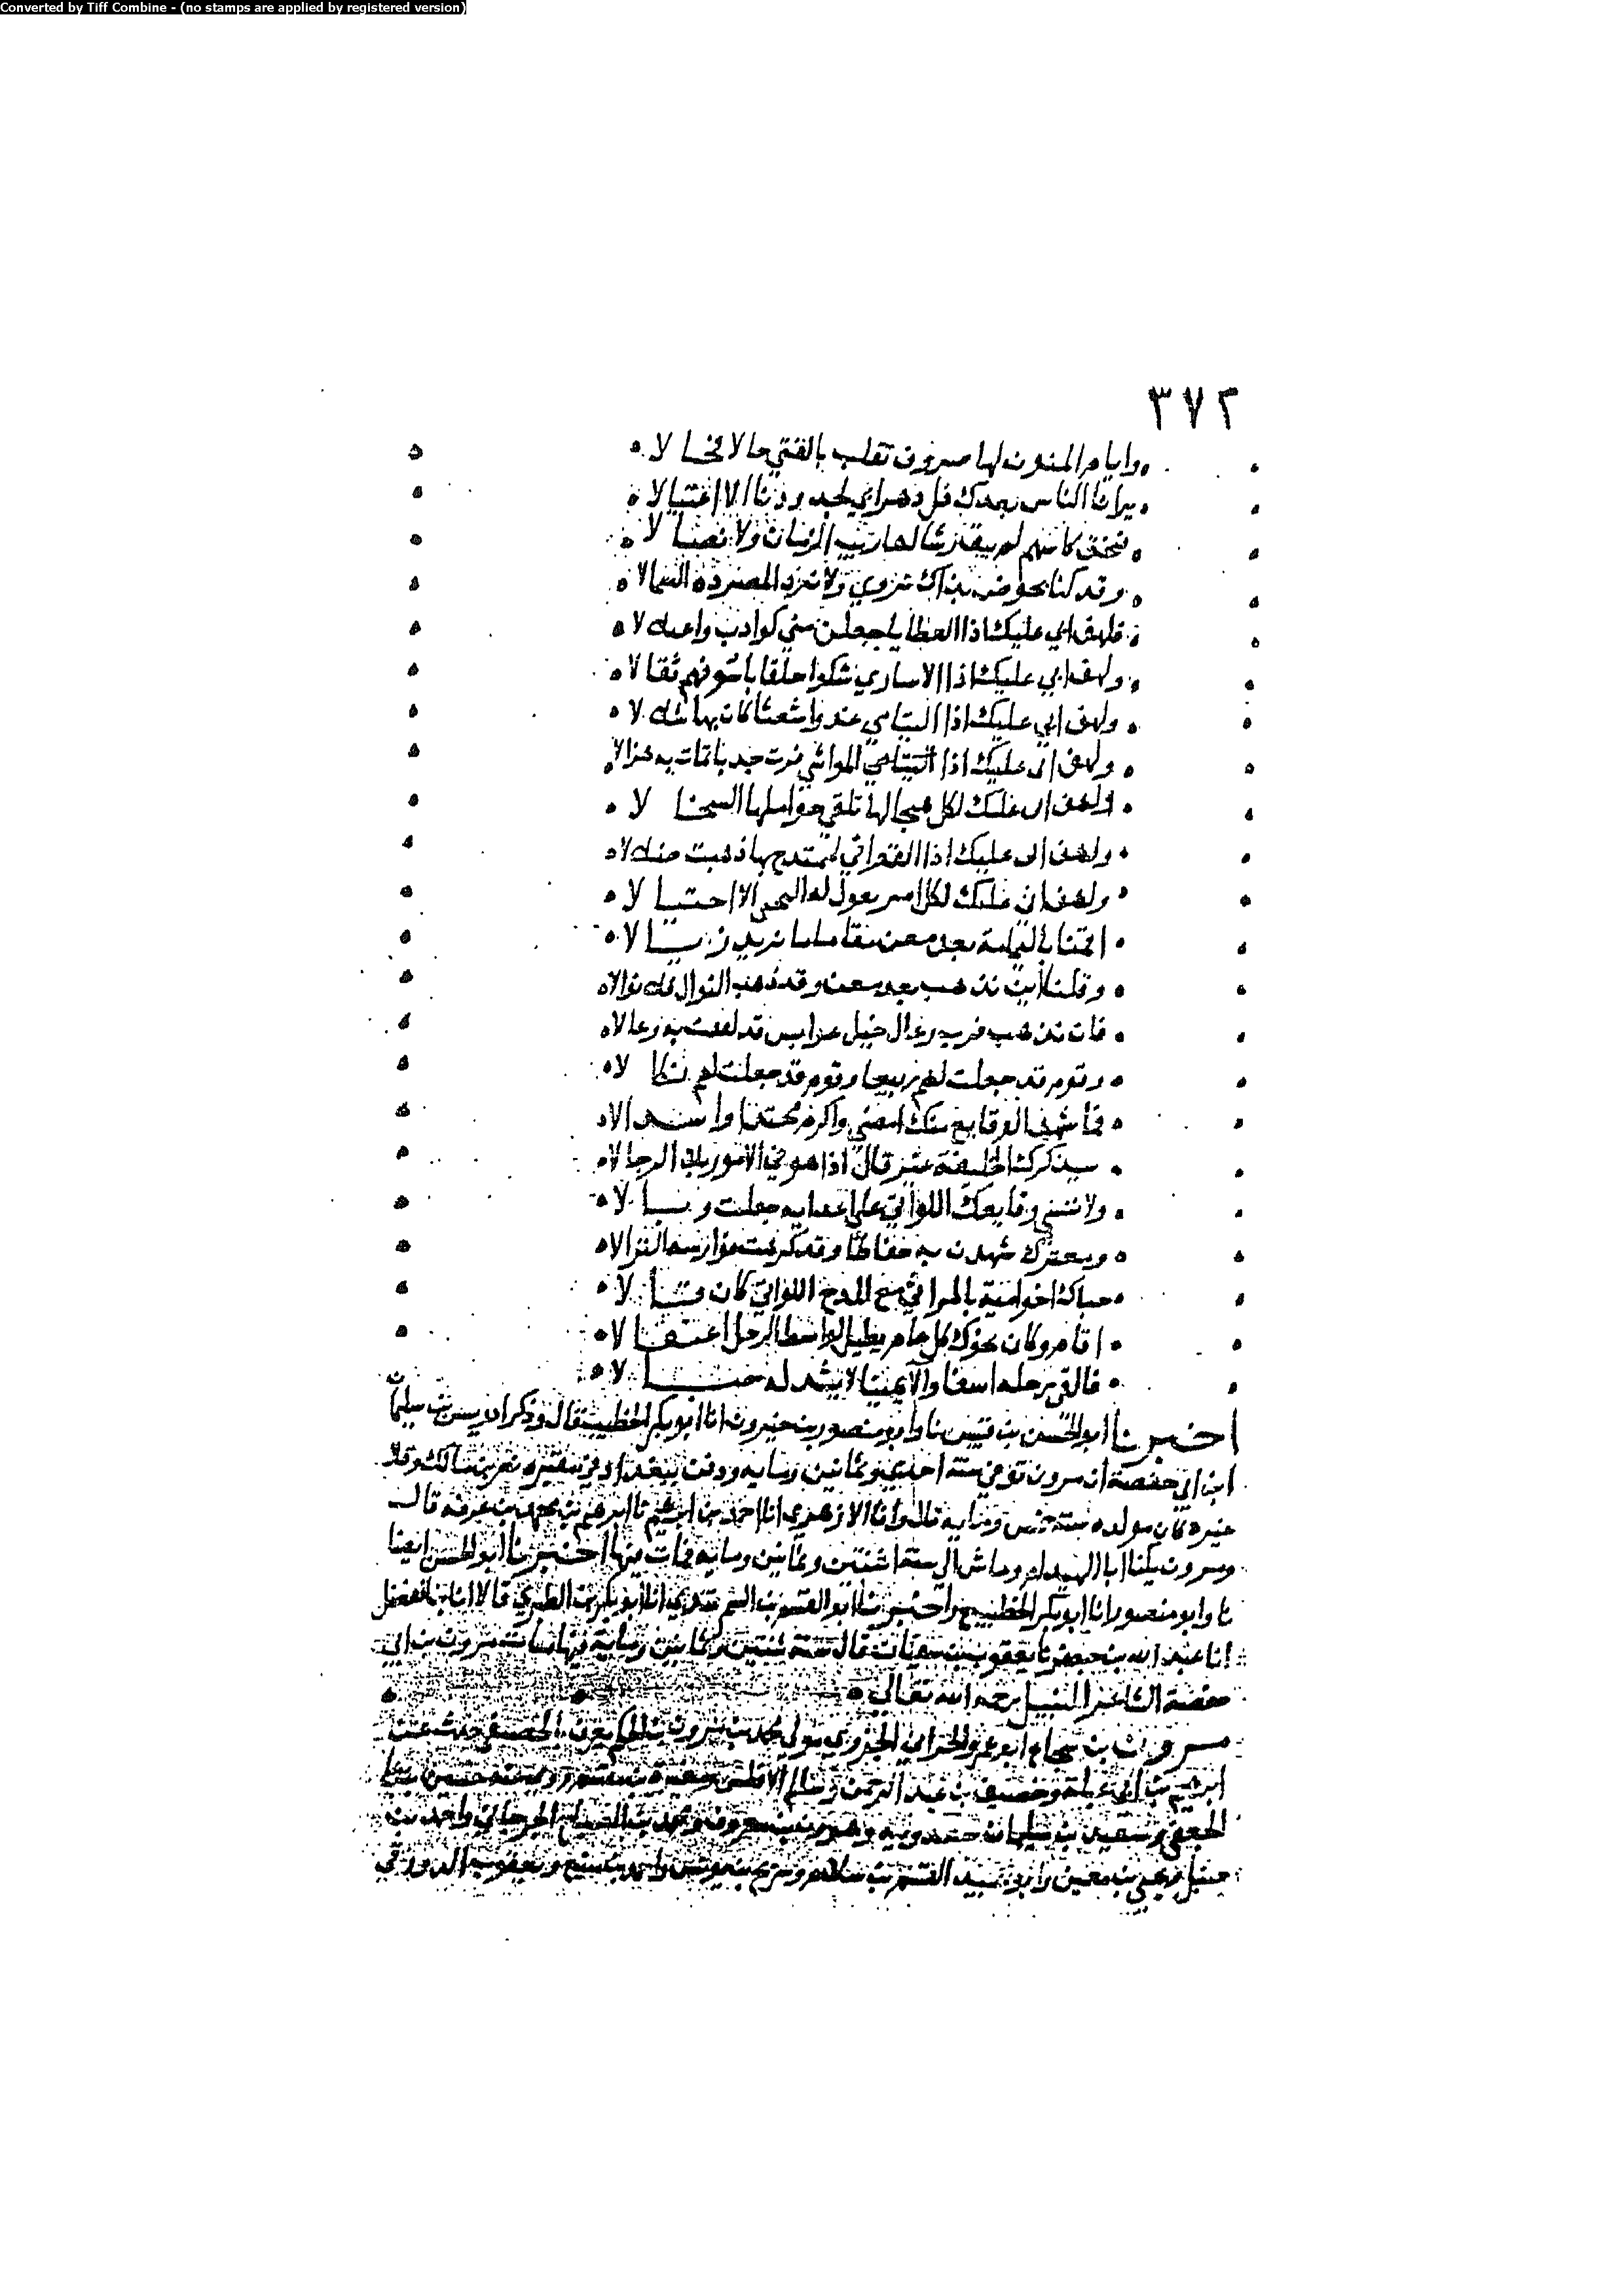 Converted by Tiff Combine - (no stamps are applied by registered version)
٣٧٢
وايام المنون لها صروف تقلب بالفتي حالا فحالا
يرانا الناس بعدك فل دهر ابي لجدودنا الا اغتيالا
فنحن كاسهم لم يبق ريشا لها ريب الزمان ولا نصالا
وقد كنا بحوض نداك نروي ولا نرد المصردة السمالا
فلهف ابي عليك اذا العطايا جعلن مني كواذب واعتلالا
ولهف ابي عليك اذا الاساري شكوا حلقا باسوقهم ثقالا
ولهف ابي عليك اذا اليتامي غدوا شعثا كان بها سلالا
ولهف ابي عليك اذا المواشي قرت جدبا تمات به هزالا
ولهف ابي عليك لكل هيجا لها تلقي حواملها السخالا
ولهف ابي عليك اذا القوافي لممتدح بها ذهبت ضلالا
ولهف ابي عليك لكل امر يقول له النجي الا احتيالا
اقمنا باليمامة بعد معن مقاما ما نريد زيالا
وقلنا اين نذهب بعد معن وقد ذهب النوال فلا نوالا
فان تذهب فرب رعال خيل عوابس قد لففت به رعالا
وقوم قد جعلت لهم ربيعا وقوم قد جعلت لهم نكالا
فما شهد الوقايع منك امضي واكرم محتدا واشد الا
سيذكرك الخليفة غير قال اذا هو في الامور بلي الرجالا
ولا ننسي وقايعك اللواتي علي اعدايه جعلت وبالا
ومعترك شهدت به حفاظا وقد كرهت فوارسه النزالا
حباك اخو امية بالمراثي مع المدح اللواتي كان قالا
اقام وكان نحوك كل عام يطيل بواسط الرحل اعتقالا
فالقي رحله اسفا والا يمينا لا يشد له حبالا
اخبرنا ابو الحسن بن قبيس نا وابو منصور بن خيرون انا ابو بكر الخطيب قال وذكر ادريس بن سليمان
ابن ابي حفصة ان مروان توفي سنة احدي وثمانين ومايه ودفن ببغداد في مقبره نصر بن مالك وقال
غيره كان مولده سنة خمس ومايه قال وانا الازهري انا احمد بن ابرهيم نا ابرهيم بن محمد بن عرفه قال
ومروان يكنا ابا الهيدام وعاش الي سنة اثنتين وثمانين ومايه فمات فيها اخبرنا ابو الحسن ايضا
نا وابو منصور انا ابو بكر الخطيب ح واخبرنا ابو القسم بن السمرقندي انا ابو بكر بن الطبري قالا انا ابن الفضل
انا عبد الله بن جعفر نا يعقوب بن سفيان قال سنة ثنتين وثمانين ومايه فيها مات مروان بن ابي
حفصة الشاعر النبيل رحمه الله تعالي
مروان بن شجاع ابو عمرو الحراني الجزري مولي محمد بن مروان بن الحكم يعرف بالخصيفي حدث عن
ابرهيم بن ابي عبلة وخصيف بن عبد الرحمن وسالم الافطس ومغيرة بن مقسم روي عنه حسين بن علي
الجعفي وسعيد بن سليمان سعدويه وهرون بن معروف ومحمد بن الصباح الجرجاني واحمد بن
حنبل ويحيي بن معين وابو عبيد القسم بن سلام وسريج بن يونس واحمد بن منيع ويعقوب الدورقي